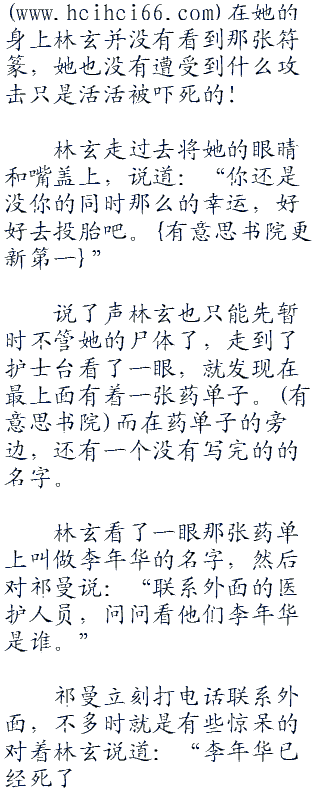 (www.hcihci66.com)在她的
身上林玄并没有看到那张符
篆，她也没有遭受到什么攻
击只是活活被吓死的！
林玄走过去将她的眼睛
和嘴盖上，说道：“你还是
没你的同时那么的幸运，好
好去投胎吧。{有意思书院更
新第一}”
说了声林玄也只能先暂
时不管她的尸体了，走到了
护士台看了一眼，就发现在
最上面有着一张药单子。(有
意思书院)而在药单子的旁
边，还有一个没有写完的的
名字。
林玄看了一眼那张药单
上叫做李年华的名字，然后
对祁曼说：“联系外面的医
护人员，问问看他们李年华
是谁。”
祁曼立刻打电话联系外
面，不多时就是有些惊呆的
对着林玄说道：“李年华已
经死了